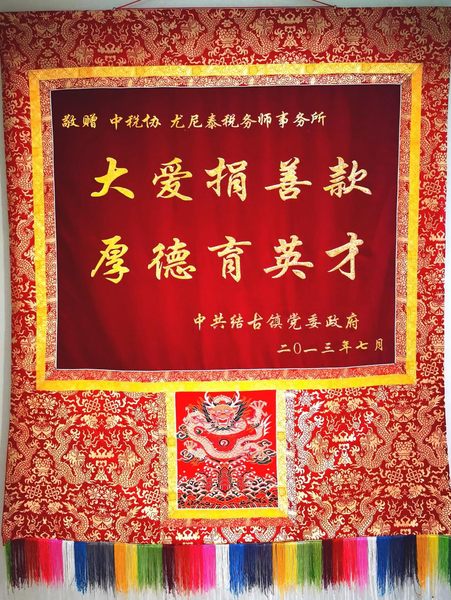 敬赠 中税协 尤尼泰税务师事务所
大爱捐善款
厚德育英才
中共结古镇党委政府
二〇一三年七月